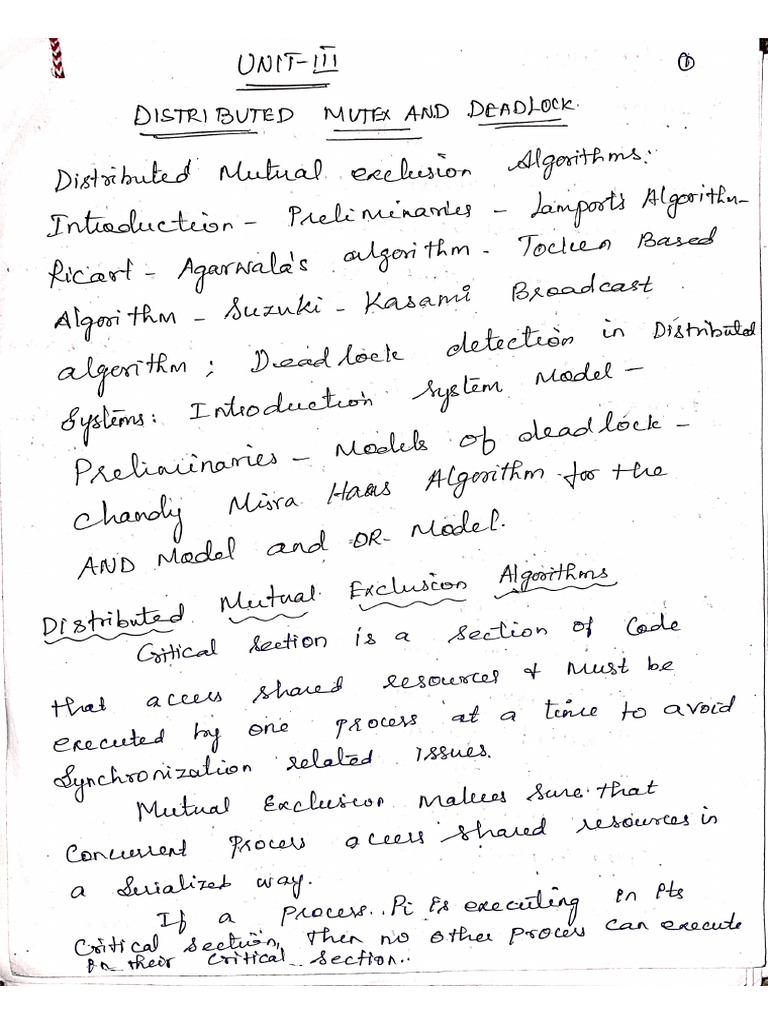 UNIT-III
①
DISTRIBUTED MUTEX AND DEADLOCK.
Distributed Mutual exclusion Algorithms:
Introduction - Preliminaries - Lamports Algorithm-
Ricart - Agarwala's algorithm - Tocken Based
Algorithm - Suzuki - Kasami Broadcast
algorithm; Deadlock detection in Distributed
Systems: Introduction System Model -
Preliminaries - Models of deadlock -
Chandy Misra Haas Algorithm for the
AND Model and OR- Model.
Distributed Mutual Exclusion Algorithms
Critical Section is a section of Code
that access shared resources & Must be
executed by one process at a time to avoid
Synchronization related issues.
Mutual Exclusion Makes Sure that
Concurrent Process access shared resources in
a Serialized way.
If a process Pi is executing in its
Critical section, then no other process can execute
in their critical section.